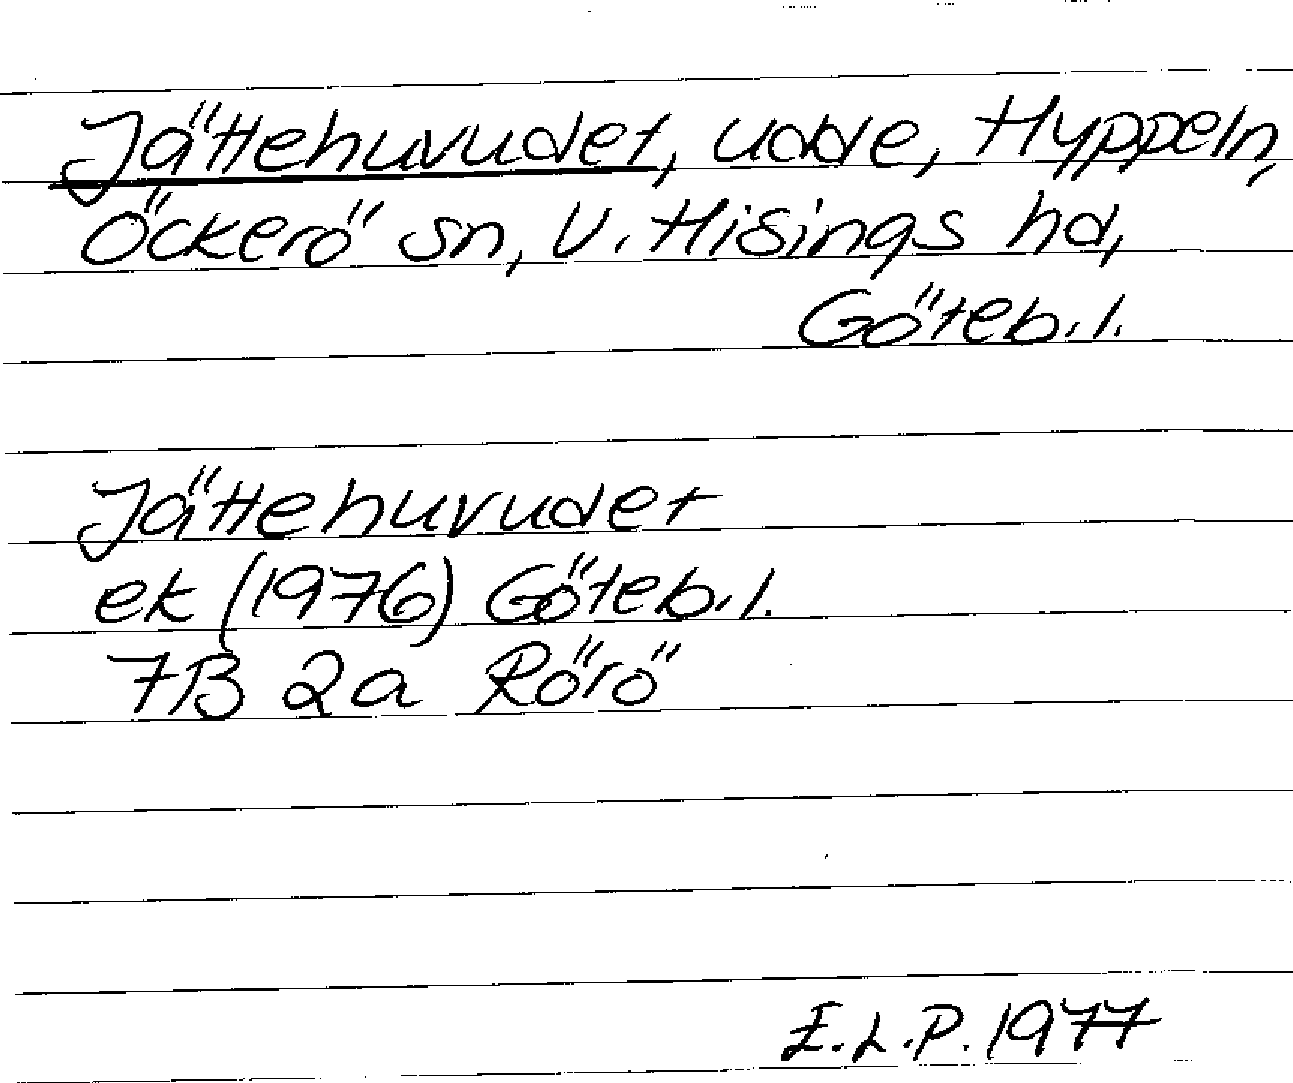 Jättehuvudet, udde, Hyppeln,
Öckerö sn, V. Hisings hd,
Göteb.l.
Jättehuvudet
ek (1976) Göteb.l.
7B 2a Rörö
E.L.P. 1977